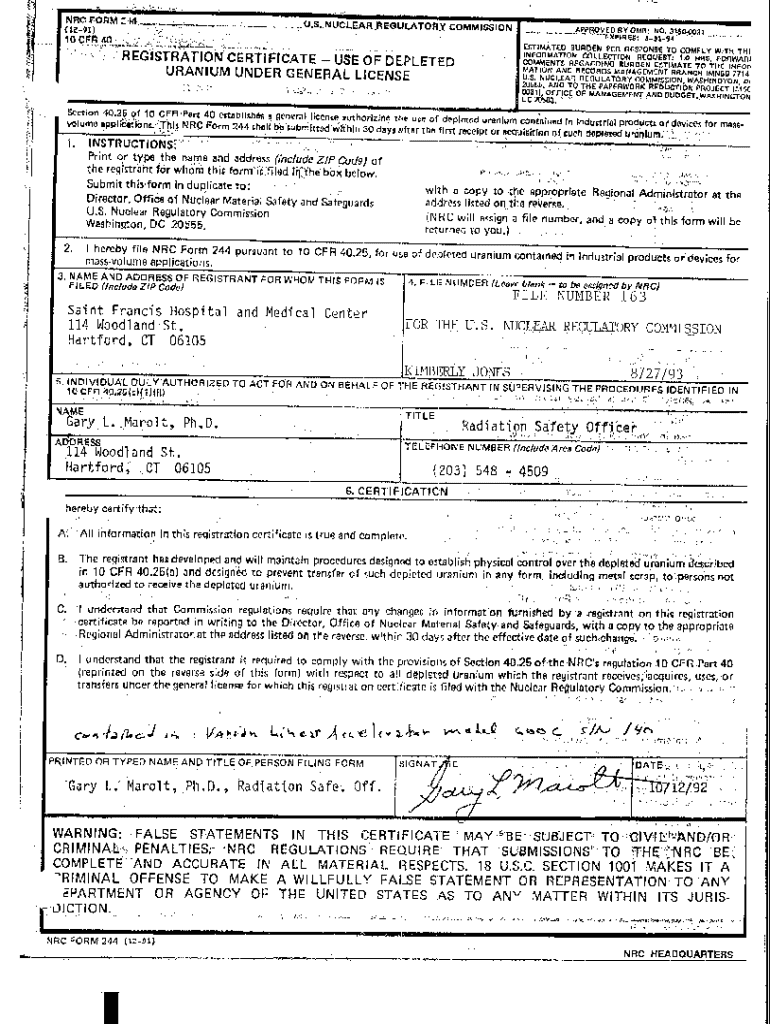 NRC FORM 244
(12-91)
10 CFR 40
U.S. NUCLEAR REGULATORY COMMISSION
REGISTRATION CERTIFICATE — USE OF DEPLETED
URANIUM UNDER GENERAL LICENSE
APPROVED BY OMB: NO. 3150-0031
EXPIRES: 5-31-94
ESTIMATED BURDEN PER RESPONSE TO COMPLY WITH THI
INFORMATION COLLECTION REQUEST: 1.0 HRS. FORWARD
COMMENTS REGARDING BURDEN ESTIMATE TO THE INFOR
MATION AND RECORDS MANAGEMENT BRANCH (MNBB 7714
U.S. NUCLEAR REGULATORY COMMISSION, WASHINGTON,
20555, AND TO THE PAPERWORK REDUCTION PROJECT (3150
0031), OFFICE OF MANAGEMENT AND BUDGET, WASHINGTON
20503.
Section 40.25 of 10 CFR Part 40 establishes a general license authorizing the use of depleted uranium contained in industrial products or devices for mass-
volume applications. This NRC Form 244 shall be submitted within 30 days after the first receipt or acquisition of such depleted uranium.
1. INSTRUCTIONS:
Print or type the name and address (include ZIP Code) of
the registrant for whom this form is filed in the box below.
Submit this form in duplicate to:
Director, Office of Nuclear Material Safety and Safeguards
U.S. Nuclear Regulatory Commission
Washington, DC 20555.
with a copy to the appropriate Regional Administrator at the
address listed on the reverse.
(NRC will assign a file number, and a copy of this form will be
returned to you.)
2. I hereby file NRC Form 244 pursuant to 10 CFR 40.25, for use of depleted uranium contained in industrial products or devices for
mass-volume applications.
3. NAME AND ADDRESS OF REGISTRANT FOR WHOM THIS FORM IS
FILED (Include ZIP Code)
Saint Francis Hospital and Medical Center
114 Woodland St.
Hartford, CT 06105
4. FILE NUMBER (Leave blank — to be assigned by NRC)
FILE NUMBER 163
FOR THE U.S. NUCLEAR REGULATORY COMMISSION
KIMBERLY JONES 8/27/93
5. INDIVIDUAL DULY AUTHORIZED TO ACT FOR AND ON BEHALF OF THE REGISTRANT IN SUPERVISING THE PROCEDURES IDENTIFIED IN
10 CFR 40.25(c)(1)(ii)
NAME
Gary L. Marolt, Ph.D.
TITLE
Radiation Safety Officer
ADDRESS
114 Woodland St.
Hartford, CT 06105
TELEPHONE NUMBER (Include Area Code)
(203) 548 - 4509
6. CERTIFICATION
hereby certify that:
A. All information in this registration certificate is true and complete.
B. The registrant has developed and will maintain procedures designed to establish physical control over the depleted uranium described
in 10 CFR 40.25(a) and designed to prevent transfer of such depleted uranium in any form, including metal scrap, to persons not
authorized to receive the depleted uranium.
C. I understand that Commission regulations require that any changes in information furnished by a registrant on this registration
certificate be reported in writing to the Director, Office of Nuclear Material Safety and Safeguards, with a copy to the appropriate
Regional Administrator at the address listed on the reverse, within 30 days after the effective date of such change.
D. I understand that the registrant is required to comply with the provisions of Section 40.25 of the NRC's regulation 10 CFR Part 40
(reprinted on the reverse side of this form) with respect to all depleted uranium which the registrant receives, acquires, uses, or
transfers under the general license for which this registration certificate is filed with the Nuclear Regulatory Commission.
contained in : Varian Linear Accelerator model 600C S/N 140
PRINTED OR TYPED NAME AND TITLE OF PERSON FILING FORM
Gary L. Marolt, Ph.D., Radiation Safe. Off.
SIGNAT
Gary L Marolt
DATE
10/12/92
WARNING: FALSE STATEMENTS IN THIS CERTIFICATE MAY BE SUBJECT TO CIVIL AND/OR
CRIMINAL PENALTIES. NRC REGULATIONS REQUIRE THAT SUBMISSIONS TO THE NRC BE
COMPLETE AND ACCURATE IN ALL MATERIAL RESPECTS. 18 U.S.C. SECTION 1001 MAKES IT A
CRIMINAL OFFENSE TO MAKE A WILLFULLY FALSE STATEMENT OR REPRESENTATION TO ANY
EPARTMENT OR AGENCY OF THE UNITED STATES AS TO ANY MATTER WITHIN ITS JURIS-
DICTION.
NRC FORM 244 (12-91)
NRC HEADQUARTERS